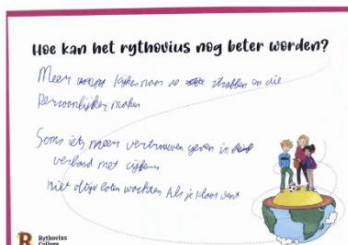 Hoe kan het rythovius nog beter worden?
Meer kijken naar de straffen en die
Persoonlijker maken
Soms iets meer vertrouwen geven in
verband met cijfers
niet altijd laten wachten Als je klaar bent
Rythovius
College